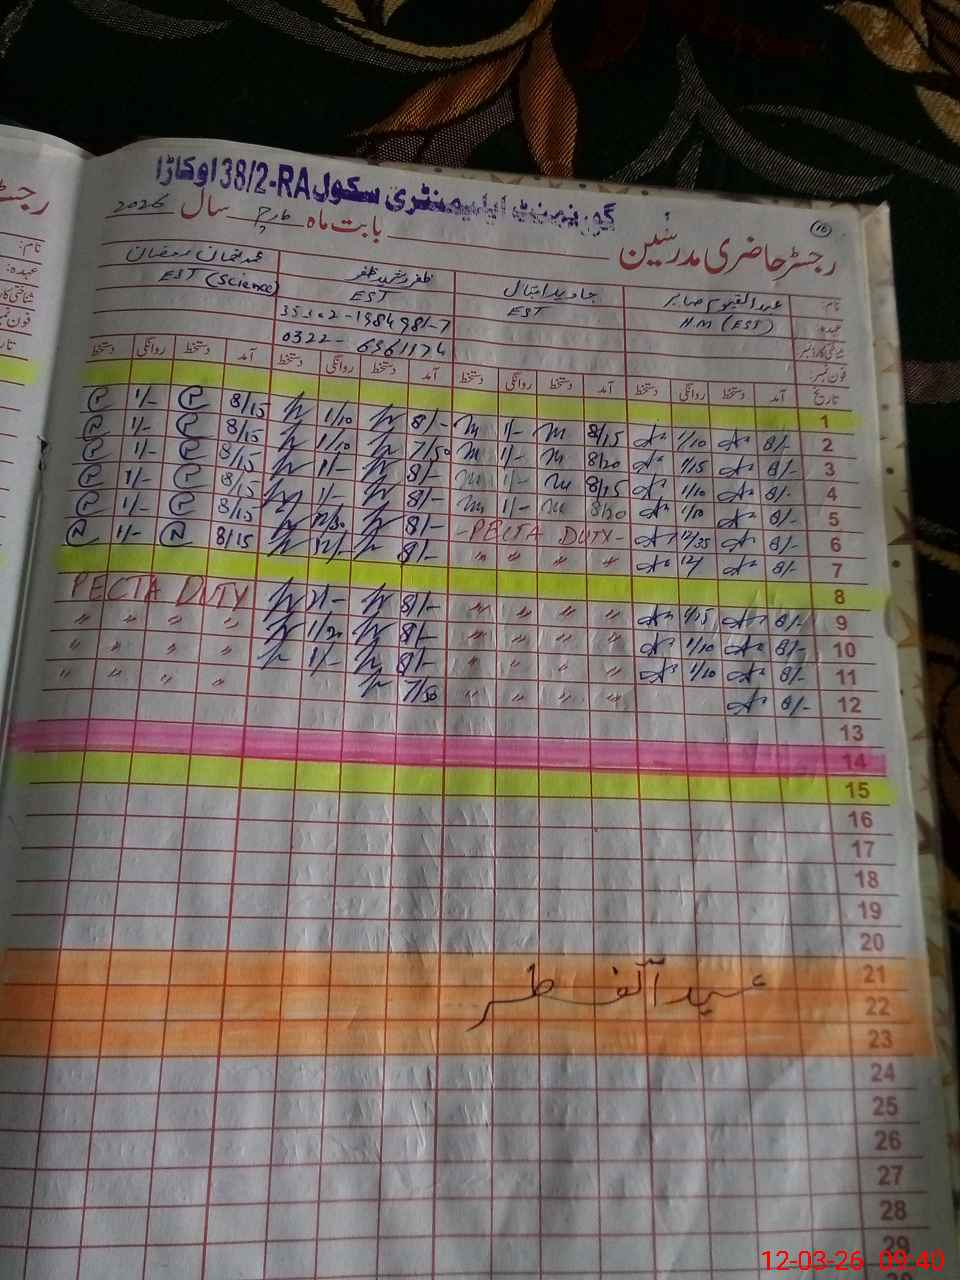 گورنمنٹ ایلیمنٹری سکول 38/2-RA اوکاڑا
رجسٹر حاضری مدرسین بابت ماہ مارچ سال 2026
10
نام: عبدالقیوم صابر جاوید اقبال ظفر رشید ظفر عثمان رمضان
عہدہ: H.M (EST) EST EST EST (Science)
شناختی کارڈ نمبر
فون نمبر:
0322-6961174
تاریخ آمد دستخط روانگی دستخط آمد دستخط روانگی دستخط آمد دستخط روانگی دستخط آمد دستخط روانگی دستخط
1
2 8/- 1/10 8/15 1/- 8/- 1/10 8/15 1/-
3 8/- 1/15 8/20 1/- 7/50 1/10 8/15 1/-
4 8/- 1/10 8/15 1/- 8/- 1/- 8/15 1/-
5 8/- 1/10 8/20 1/- 8/- 1/- 8/15 1/-
6 8/- - PECTA DUTY - 8/- 8/15 1/-
7 8/- " " " " 8/- 12/- 8/15 1/-
8
9 8/- 1/15 " " " " 8/- 2/- PECTA DUTY
10 8/- 1/10 " " " " 8/- 1/20 " " " "
11 8/- 1/10 " " " " 8/- 1/- " " " "
12 8/- " " " " 7/50 " " " "
13
14
15
16
17
18
19
20
21
22 عید الفطر
23
24
25
26
27
28
29
12-03-26 09:40